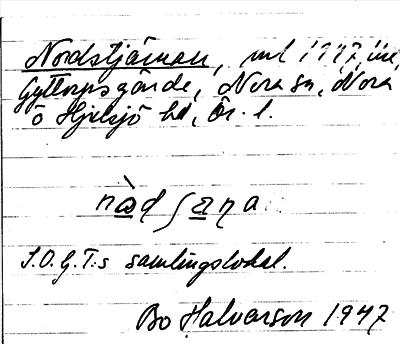 Nordstjärnan, 
Gyttorps gärde, Nora sn, Nora
o Hjulsjö hd, Ör. l.
nὼdʃa̲ŋa
I.O.G.T:s samlingslokal.
Bo Halvarson 1947